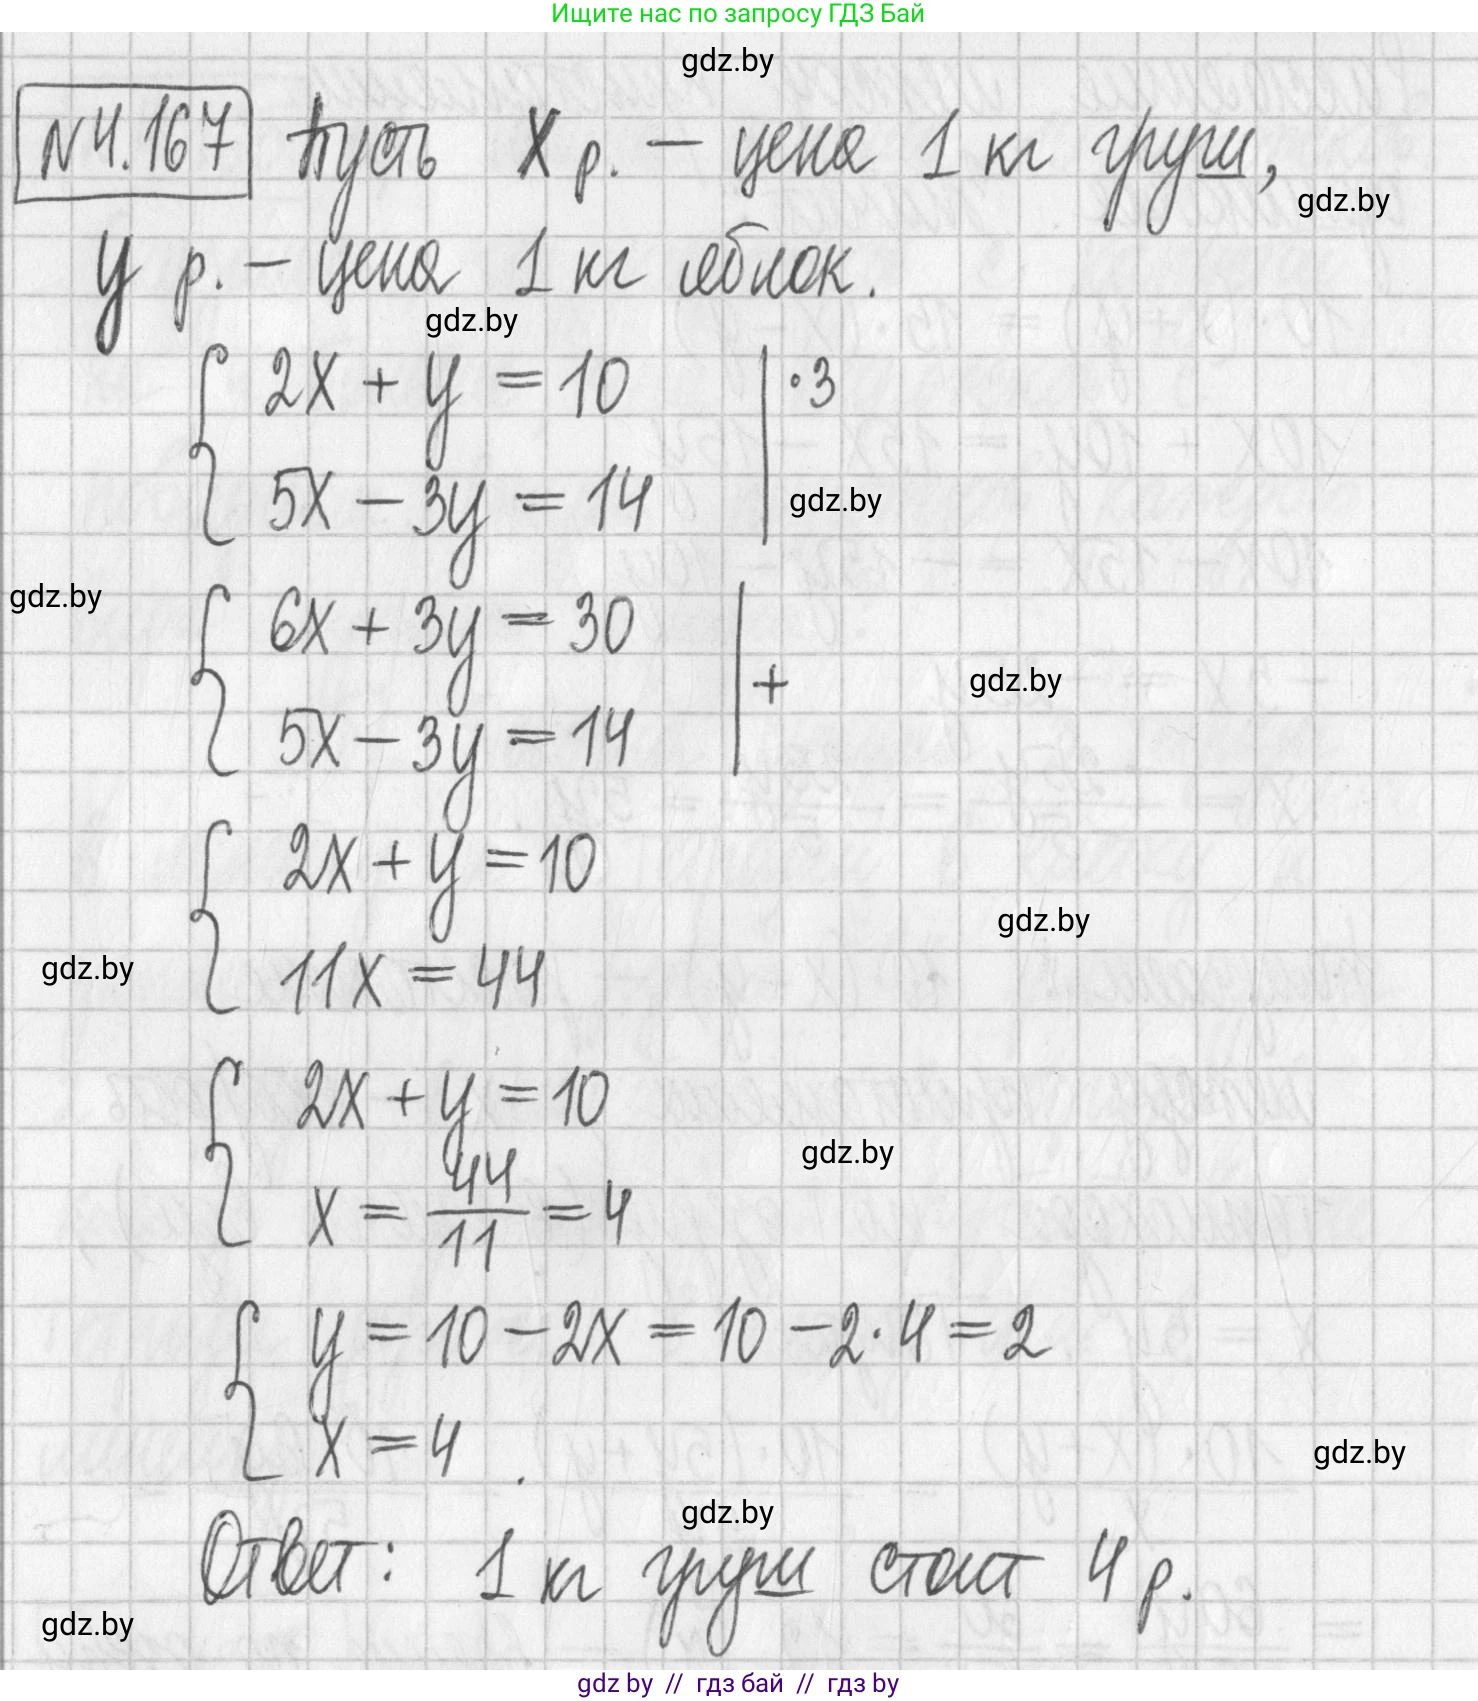 Ищите нас по запросу ГДЗ Бай
gdz.by
№4.167 Пусть x р. – цена 1 кг груш,
gdz.by
y р. – цена 1 кг яблок.
gdz.by
2x + y = 10 | ·3
5x – 3y = 14
gdz.by
gdz.by
6x + 3y = 30
5x – 3y = 14 | +
gdz.by
2x + y = 10
gdz.by
11x = 44
gdz.by
2x + y = 10
gdz.by
x = 44/11 = 4
y = 10 – 2x = 10 – 2·4 = 2
x = 4.
gdz.by
gdz.by
Ответ: 1 кг груш стоит 4 р.
gdz.by
gdz by // гдз бай // гдз by